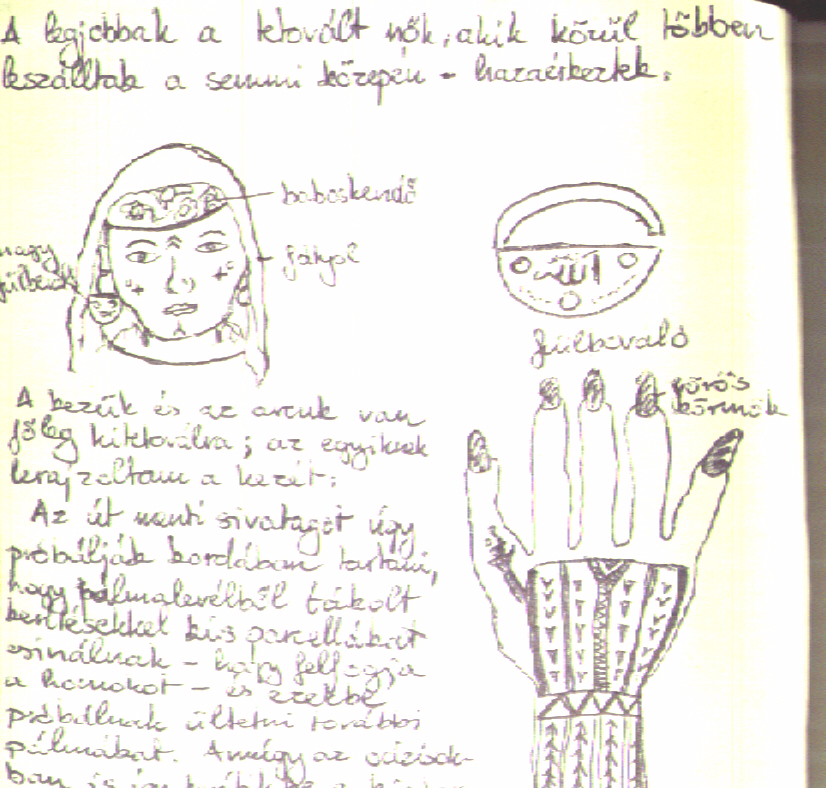 A legjobbak a tetovált nők, akik közül többen
leszálltak a semmi közepén - hazaérkeztek.
baboskendő
nagy
fülbevaló
fátyol
الله
fülbevaló
vörös
körmök
A kezük és az arcuk van
főleg kitetoválva; az egyiknek
lerajzoltam a kezét:
Az út menti sivatagot úgy
próbálják kordában tartani,
hogy pálmalevélből tákolt
kerítésekkel kis parcellákat
csinálnak - hogy felfogja
a homokot - és ezekbe
próbálnak ültetni további
pálmákat. Amúgy az oázisok-
ban is így